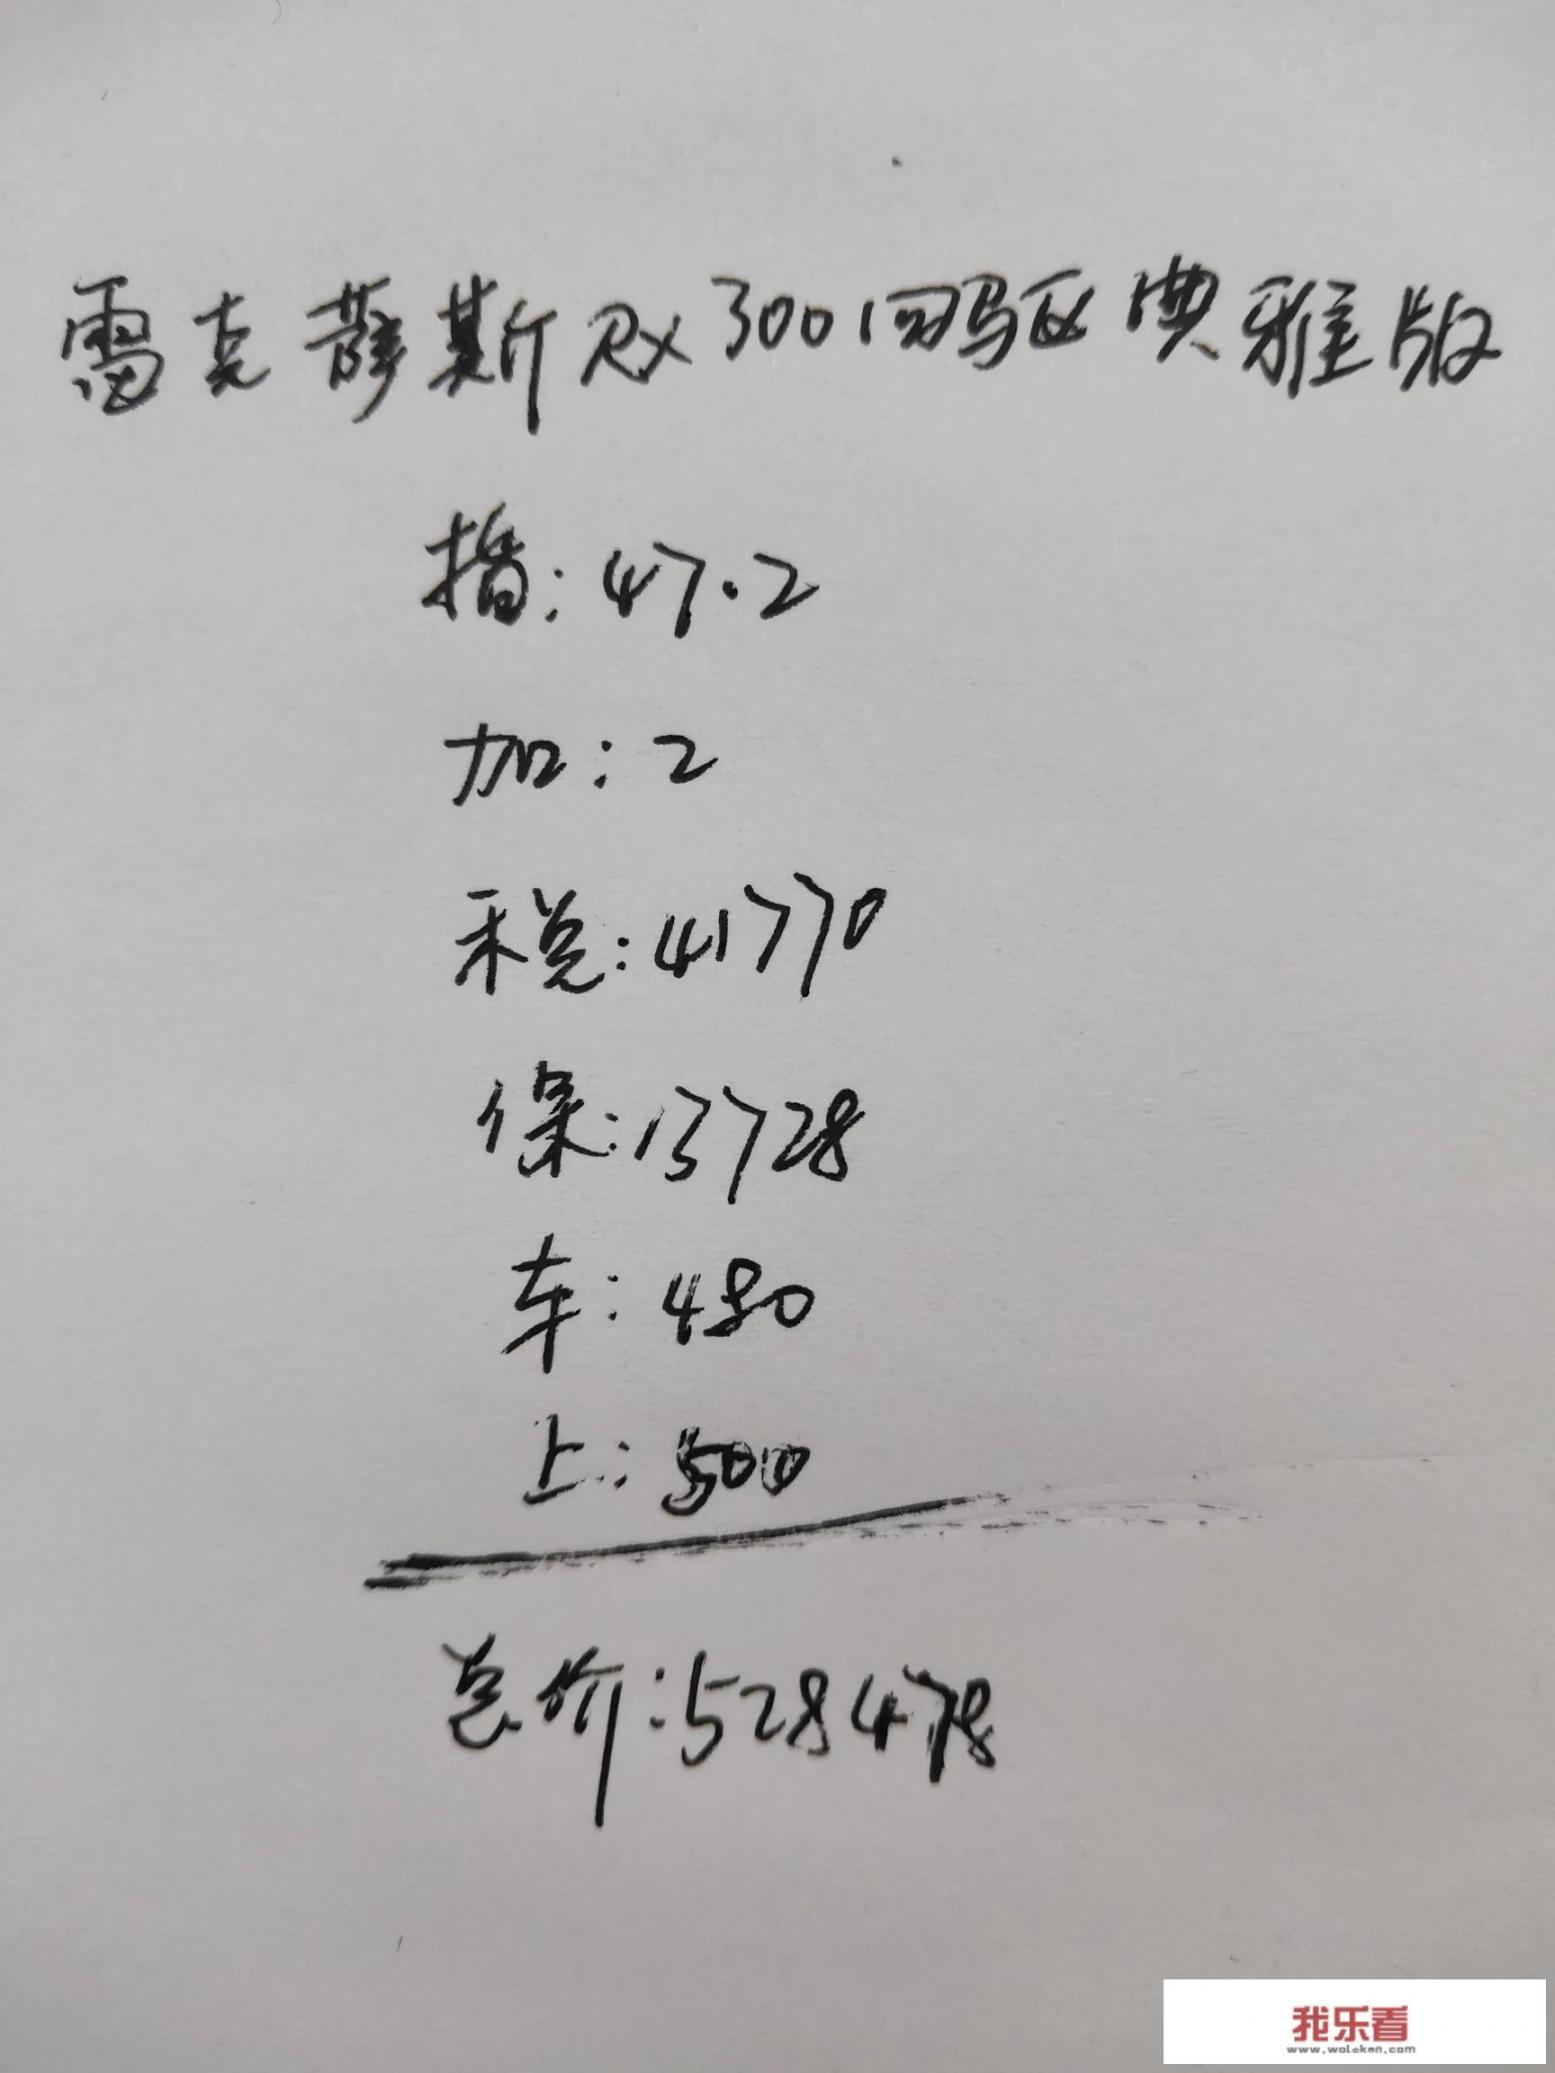 雷克萨斯RX300四驱典雅版
指:47.2
加:2
税:41770
保:13728
车:480
上:500
总价:528478
我乐看
www.woleken.com